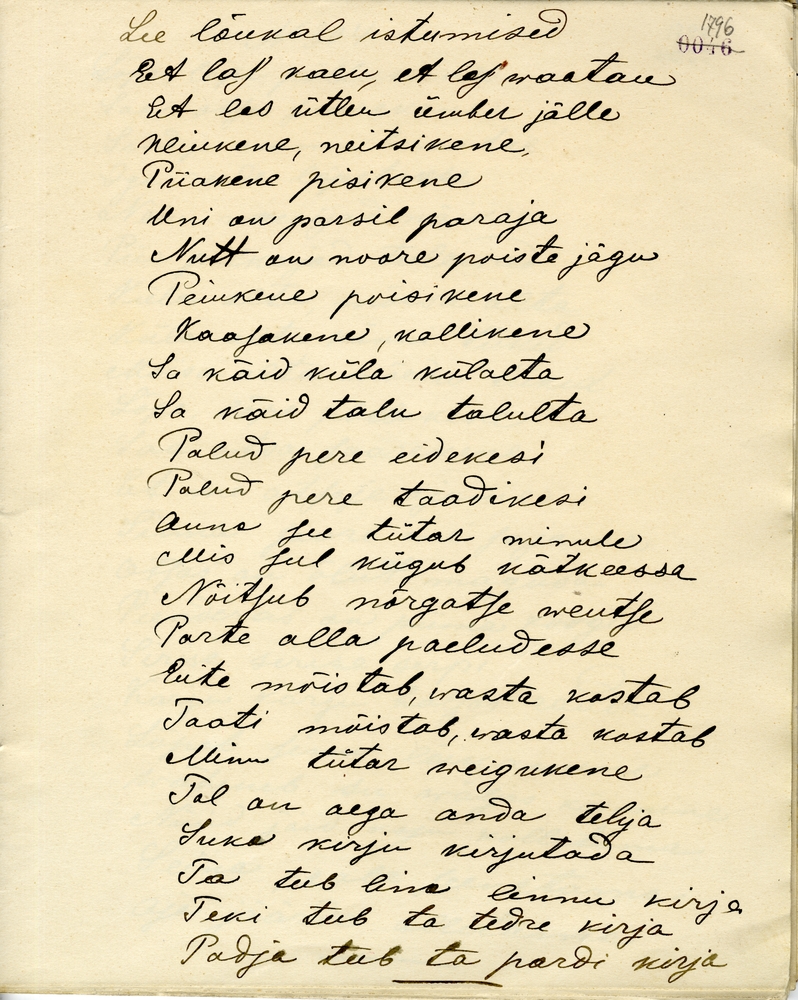 1796
0046
Lee lõukal istumised
Et las kaeu, et las waatau
Et las ütleu ümber jälle
Neiukene, neitsikene,
Piiakene pisikene
Uni on parsil paraja
Nutt on noore poiste jägu
Peiukene poisikene
Kaasakene, kallikene
Sa käid küla külalta
Sa käid talu talulta
Palud pere eidekesi
Palud pere taadikesi
Anna see tütar minule
Mis sul kiigub kätkeessa
Nõitsub nõrgatse weutse
Parte alla paeludesse
Eite mõistab, wasta kostab
Taati mõistab, wasta kostab
Minu tütar weigukene
Tal on aega anda telja
Suka kirju kirjutada
Ta teeb lina linnu kirja
Teki teeb ta tedre kirja
Padja teeb ta pardi kirja